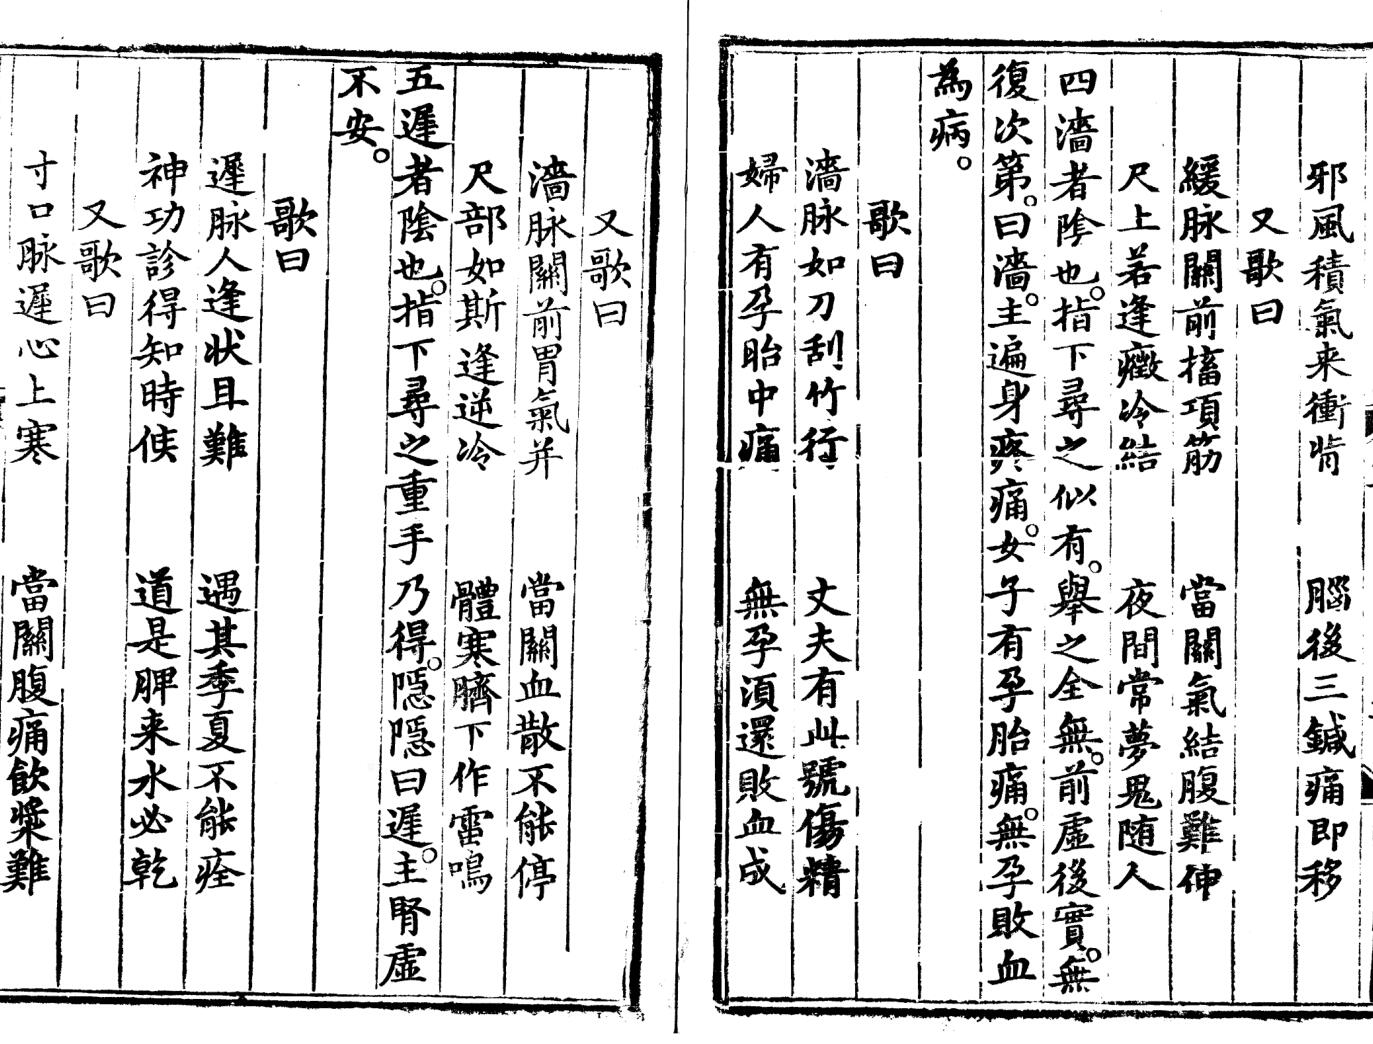 邪風積氣来衝背　腦後三鍼痛即移
又歌曰
緩脉關前搐項筋　當關氣結腹難伸
尺上若逢癥冷結　夜間常夢鬼随人
四濇者陰也。指下尋之似有。舉之全無。前虚後實。無
復次第。曰濇。主遍身疼痛。女子有孕胎痛。無孕敗血
為病。
歌曰
濇脉如刀刮竹行　丈夫有此號傷精
婦人有孕胎中痛　無孕湏還敗血成
又歌曰
濇脉關前胃氣并　當關血散不能停
尺部如斯逢逆冷　體寒臍下作雷鳴
五遲者陰也。指下尋之重手乃得。隠隠曰遲。主腎虚
不安。
歌曰
遲脉人逢状且難　遇其季夏不能痊
神功診得知時候　道是脾来水必乾
又歌曰
寸口脉遲心上寒　當關腹痛飲漿難